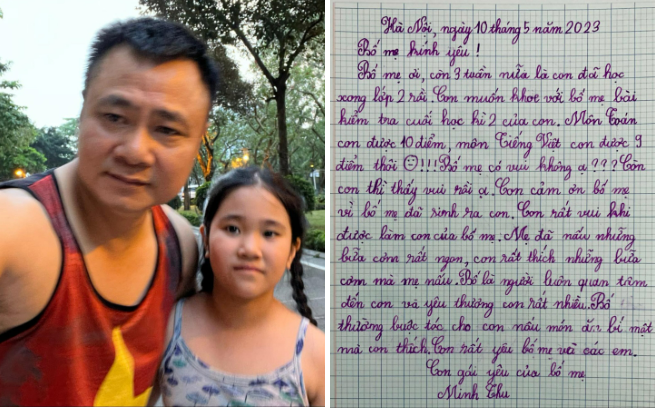 Hà Nội, ngày 10 tháng 5 năm 2023
Bố mẹ kính yêu !
Bố mẹ ơi, còn 3 tuần nữa là con đã học
xong lớp 2 rồi. Con muốn khoe với bố mẹ bài
kiểm tra cuối học kì 2 của con. Môn Toán
con được 10 điểm, môn Tiếng Việt con được 9
điểm thôi ☺!!! Bố mẹ có vui không ạ ??? Còn
con thì thấy vui rồi ạ. Con cảm ơn bố mẹ
vì bố mẹ đã sinh ra con. Con rất vui khi
được làm con của bố mẹ. Mẹ đã nấu những
bữa cơm rất ngon, con rất thích những bữa
cơm mà mẹ nấu. Bố là người luôn quan tâm
đến con và yêu thương con rất nhiều. Bố
thường buộc tóc cho con nấu món bí mật
mà con thích. Con rất yêu bố mẹ và các em.
Con gái yêu của bố mẹ
Minh Thu